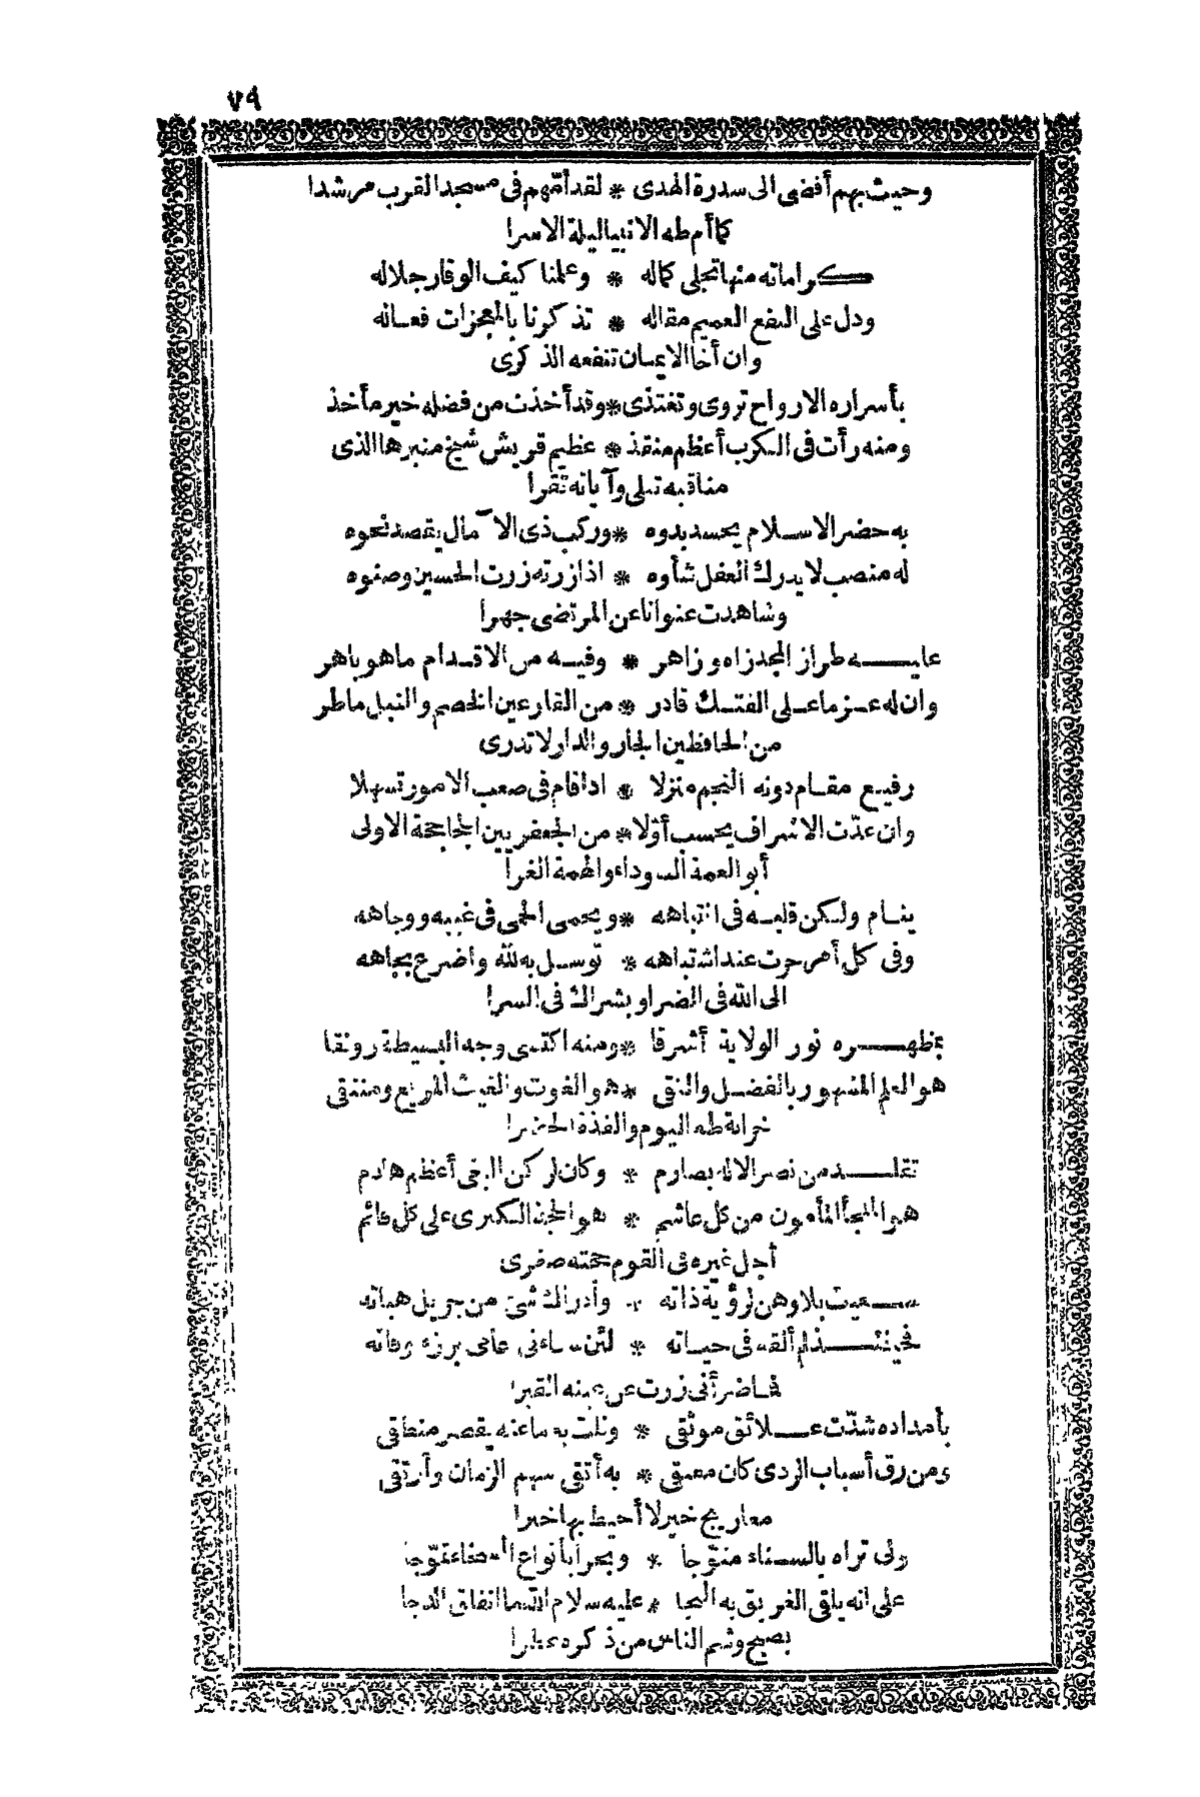 ٧٩
وحيث بهم أفضى الى سدرة الهدى * لقد أمّهم فى مسجد القرب مرشدا
كما أم طه الانبيا ليلة الاسرا
كراماته منها تجلى كماله * وعلمنا كيف الوقار جلاله
ودل على النفع العميم مقاله * تذكرنا بالمعجزات فعاله
وان أخا الايمان تنفعه الذكرى
بأسراره الارواح تروى وتغتذى * وقد أخذت من فضله خير مأخذ
ومنه رأت فى الكرب أعظم منقذ * عظيم قريش شيخ منبرها الذى
مناقبه تتلى وآياته تقرا
به حضر الاسلام يحسد بدوه * وركب ذى الآمال يقصد نحوه
له منصب لا يدرك العقل شأوه * اذا زرته زرت الحسين وصنوه
وشاهدت عنوانا عن المرتضى جهرا
عليه طراز المجد زاه وزاهر * وفيه من الاقدام ما هو باهر
وان له عزما على الفتك قادر * من القارعين الخصم والنبل ماطر
من الحافظين الجار والدار لا تدرى
رفيع مقام دونه النجم منزلا * اذا قام فى صعب الامور تسهلا
وان عدّت الاشراف يحسب أوّلا * من الجعفريين الجحاجحة الاولى
أبو العمة السوداء والهمة الغرا
ينام ولكن قلبه فى انتباهه * ويحمى الحمى فى غيبه ووجاهه
وفى كل أمر حرت عند اشتباهه * توسل به لله واضرع بجاهه
الى الله فى الضرا وبشراك فى السرا
بمظهره نور الولاية أشرقا * ومنه اكتسى وجه البسيطة رونقا
هو العلم المشهور بالفضل والتقى * هو الغوث والغيث المريع ومنتقى
خزانة طه اليوم والفلذة الخضرا
تقلد من نصر الاله بصارم * وكان لركن البغى أعظم هادم
هو الملجأ المأمون من كل غاشم * هو الحجة الكبرى على كل قائم
أجل غيره فى القوم حجته صغرى
سعيت بلا وهن لرؤية ذاته * وأدراك شئ من جزيل هباته
فحينئذ لم ألقه فى حياته * لئن ساءنى على برزء وفاته
فما ضر أنى زرت عن عينه القبرا
بأمداده شدّت علائق موثقى * ونلت به ما عنه يقصر منطقى
ومن رق أسباب الردى كان معتقى * به أتقى سهم الزمان وأرتقى
معاريج خير لا أحيط بها خبرا
ولى تراه بالسناء متوّجا * وبحرا بأنواع السخاء تموّجا
على انه يلقى الغريق به النجا * عليه سلام الله ما انفلق الدجا
بصبح وشم الناس من ذكره عطرا